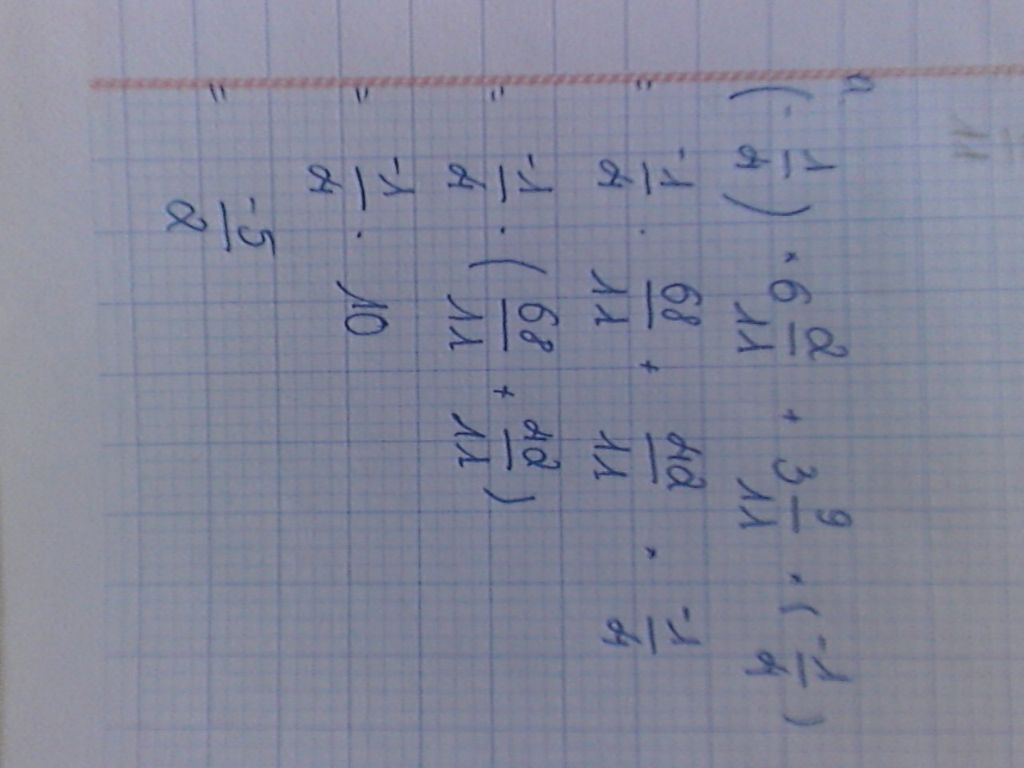 a
(-1/4) · 6 2/11 + 3 9/11 · (-1/4)
= -1/4 · 68/11 + 42/11 · -1/4
= -1/4 · (68/11 + 42/11)
= -1/4 · 10
= -5/2